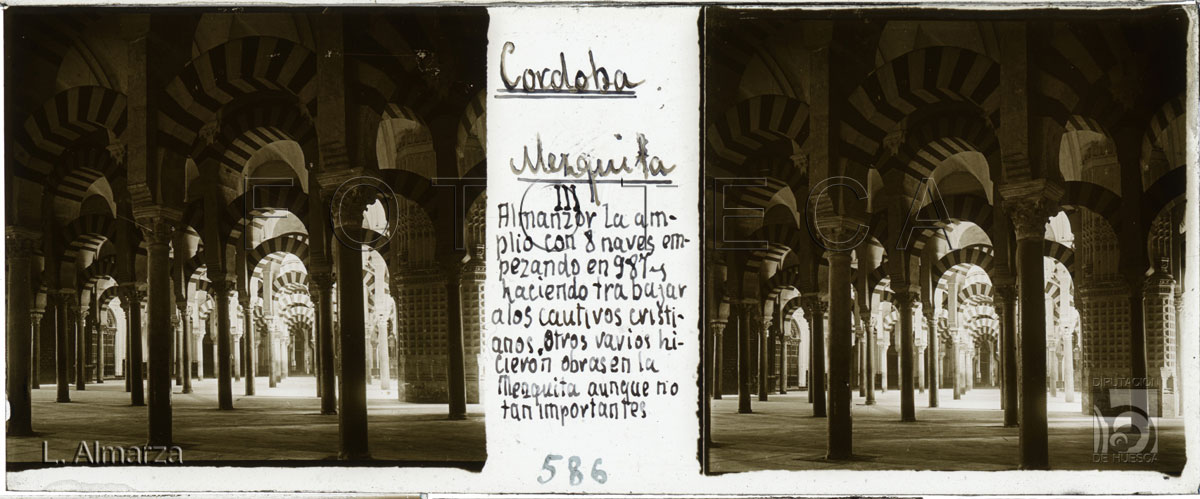 Cordoba.
Mezquita
III
Almanzor la am-
plio con 8 naves em-
pezando en 987 y
haciendo trabajar
a los cautivos cristi-
anos, otros varios hi-
cieron obras en la
Mezquita aunque no
tan importantes
586
FOTOTECA
L. Almarza
DIPUTACIÓN
DE HUESCA